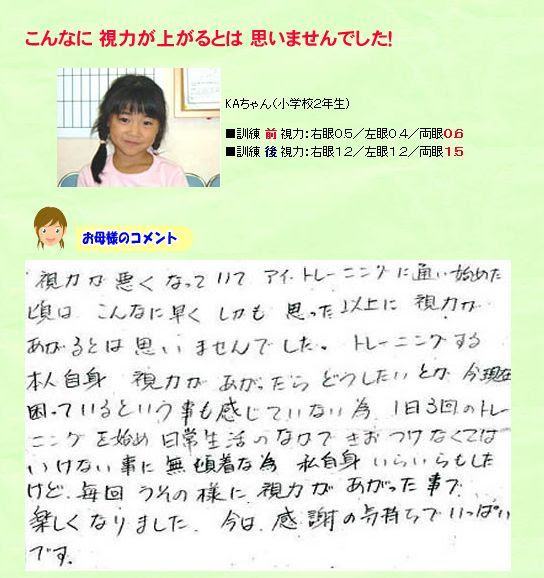 こんなに 視力が上がるとは 思いませんでした!
KAちゃん(小学校2年生)
■訓練 前 視力:右眼0.5/左眼0.4/両眼0.6
■訓練 後 視力:右眼1.2/左眼1.2/両眼1.5
お母様のコメント
視力が悪くなってきて アイ.トレーニングに通い始めた
頃は、こんなに早く しかも 思った以上に 視力が
あがるとは思いませんでした。トレーニングする
本人自身 視力が あがったら どうしたいとか 今現在
困っているという事も感じていない為、1日3回のトレ-
ニングを始め 日常生活のなかで きおつけなくては
いけない事に 無頓着な為 私自身 いらいらもした
けど、毎回 うその様に 視力が あがった事で
楽しくなりました。今は、感謝の気持ちでいっぱい
です。